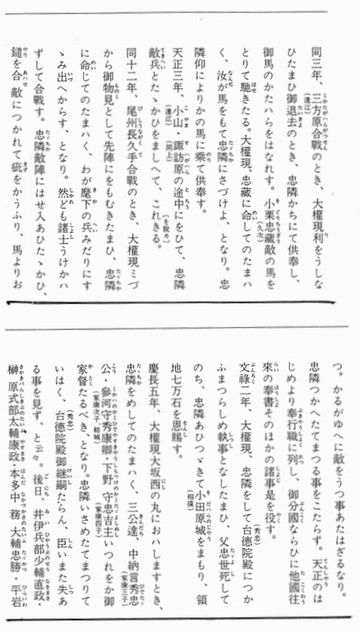 同三年、三方原合戰のとき、大權現利をうしな
ひたまひ御退去のとき、忠隣かちにて供奉し、
御馬のかたハらをはなれす。小栗忠藏敵の馬を
とりて馳きたる。大權現、忠藏に命してのたまハ
く、汝か馬をもて忠隣にさづけよ、となり。忠
隣仰によりかの馬に乘て供奉す。
天正三年、小山・諏訪原の途中にをひて、忠隣
敵兵とたゝかひをましへて、これきる。
同十二年、尾州長久手合戰のとき、大權現ミづ
から御物見として先陣にをもむきたまひ、忠隣
に命してのたまハく、わが麾下の兵みだりにす
ゝみ出へからす、となり。然ども諸士うけかハ
ずして合戰す。忠隣敵陣にはせ入あひたゝかひ、
鑓を合、敵につかれて疵をかうふり、馬よりお
つ。かるがゆへに敵をうつ事あたはざるなり。
忠隣つかへたてまつる事をこたらず。天正のは
じめより奉行職に列し、御分國ならひに他國往
來の奉書そのほかの諸事是を役す。
文祿二年、大權現、忠隣をして台德院殿につか
ふまつらしめ執事となしたまひ、父忠世死して
のち、忠隣あひつゞきて小田原城をまもり、領
地七万石を恩賜す。
慶長五年、大權現大坂西の丸におハしますとき、
忠隣をめしてのたまハく、三公達、中納言秀忠
公・參河守秀康卿・下野守忠吉主いつれをか御
家督たるべき、となり。忠隣いさめたてまつりて
いはく、台德院殿御繼嗣たらん、臣いまた失あ
る事を見ず、と云々。後日、井伊兵部少輔直政・
榊原式部太輔康政・本多中務太輔忠勝・平岩